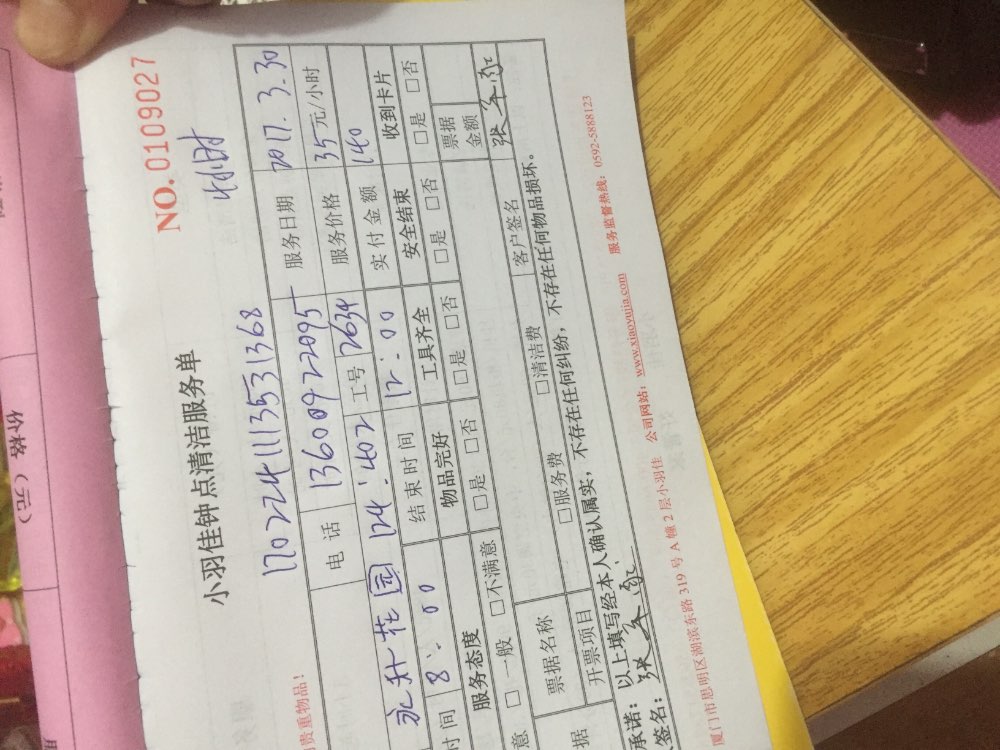 NO. 0109027
小羽佳钟点清洁服务单
1702241113531368
电话 13600922095 服务日期 2017.3.30
服务价格 35元/小时
永升花园 124:402 工号 2634 实付金额 140
时间 8:00 结束时间 12:00 收到卡片
服务态度 物品完好 工具齐全 安全结束 □是 □否
意 □一般 □不满意 □是 □否 □是 □否 □是 □否 票据金额
票据名称 □服务费 □清洁费 客户签名 张
开票项目
承诺：以上填写经本人确认属实，不存在任何纠纷，不存在任何物品损坏。
签名：张
厦门市思明区湖滨东路319号A幢2层小羽佳 公司网站：www.xiaoyujia.com 服务监督热线：0592-5888123
贵重物品！
价格（元）